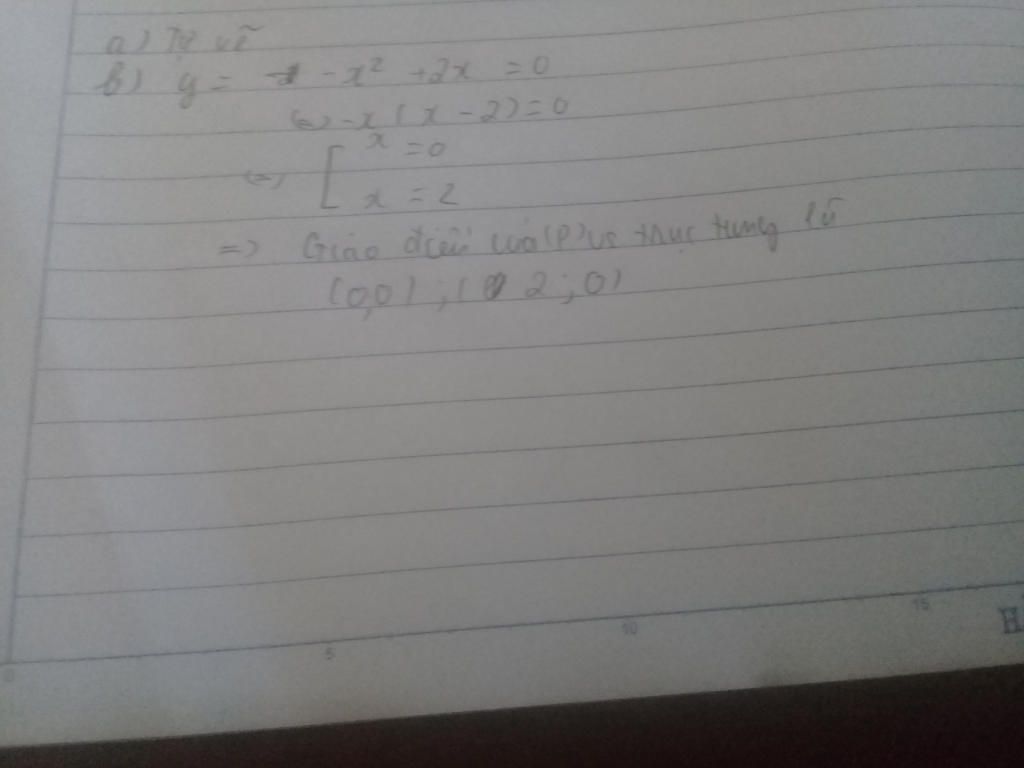 a) Tự vẽ
b) y = -x² +2x = 0
(=) -x (x - 2) = 0
(=) [ x = 0
x = 2
=) Giao điểm của (P) vs trục tung là
(0,0) ; ( 2 ; 0)
5 10 15
H